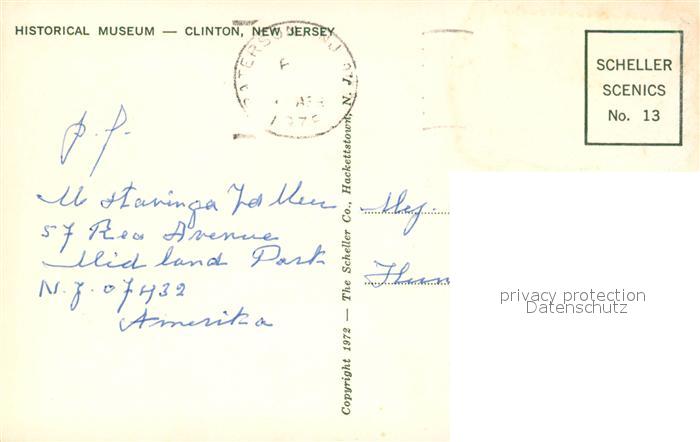 HISTORICAL MUSEUM — CLINTON, NEW JERSEY
PATERSON NJ
SCHELLER
SCENICS
No. 13
p.f.
57 Rea Avenue
Midland Park
N.J. 07432
Amerika
Copyright 1972 — The Scheller Co., Hackettstown, N. J.
Mej.
privacy protection
Datenschutz